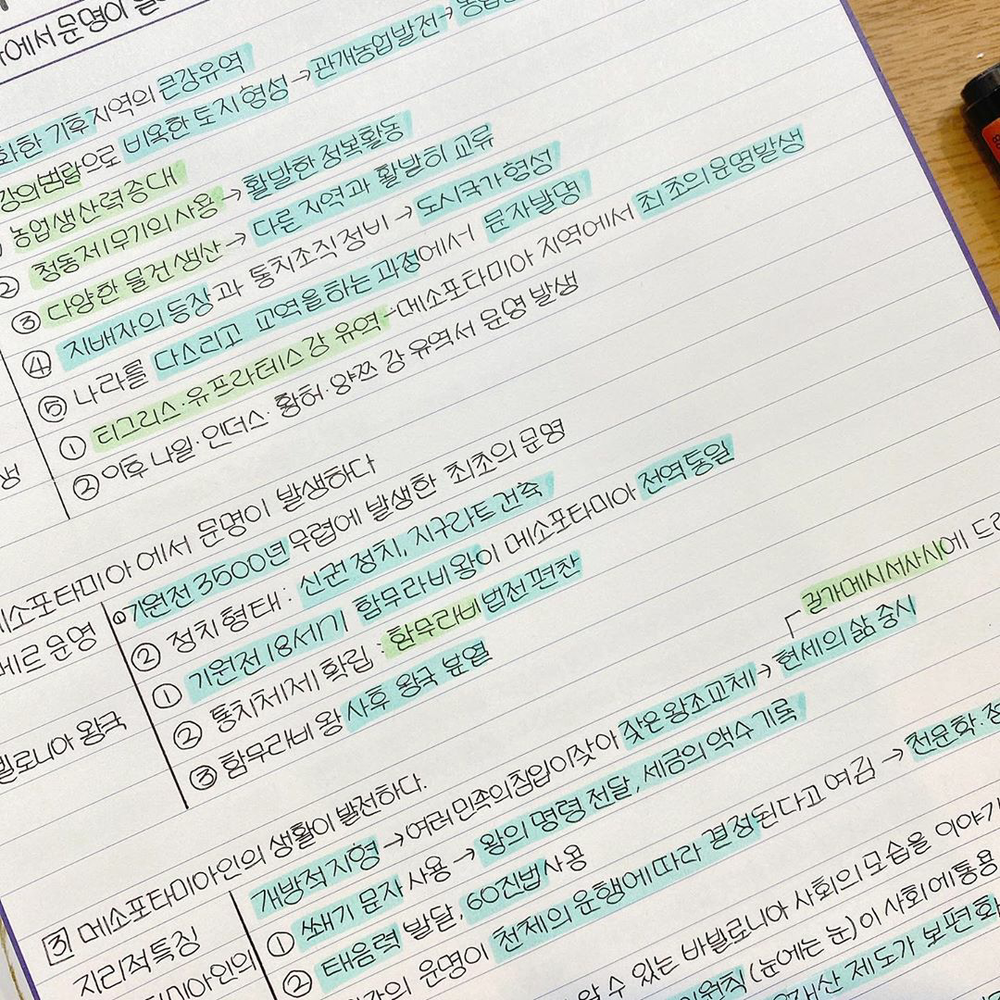 에서 문명이
화한 기후지역의 큰강유역
강의범람으로 비옥한 토지 형성 → 관개농업발전 →
농업 생산력 증대
② 청동제 무기의 사용 → 활발한 정복활동
③ 다양한 물건 생산 → 다른 지역과 활발히 교류
④ 지배자의 등장과 통치조직 정비 → 도시국가 형성
⑤ 나라를 다스리고 교역을 하는 과정에서 문자발명
① 티그리스·유프라테스강 유역 - 메소포타미아 지역에서 최초의 문명발생
생 ② 이후 나일·인더스·황허·양쯔 강 유역서 문명 발생
소포타미아에서 문명이 발생하다
메르 문명 ① 기원전 3500년 무렵에 발생한 최초의 문명
② 정치 형태 : 신권 정치, 지구라트 건축
빌로니아 왕국 ① 기원전 18세기 함무라비왕이 메소포타미아 전역통일
② 통치체제 확립 : 함무라비법전 편찬
③ 함무라비 왕 사후 왕국 분열
3 메소포타미아인의 생활이 발전하다.
길가메시서사시에
지리적특징 개방적 지형 → 여러 민족의 침입이 잦아 잦은 왕조교체 → 현세의 삶 중시
미아인의 ① 쐐기 문자 사용 → 왕의 명령 전달, 세금의 액수 기록
② 태음력 발달, 60진법 사용
의 운명이 천체의 운행에 따라 결정된다고 여김 → 천문학·점
알 수 있는 바빌로니아 사회의 모습을 이야기
원칙 (눈에는 눈)이 사회에 통용
산 제도가 보편화